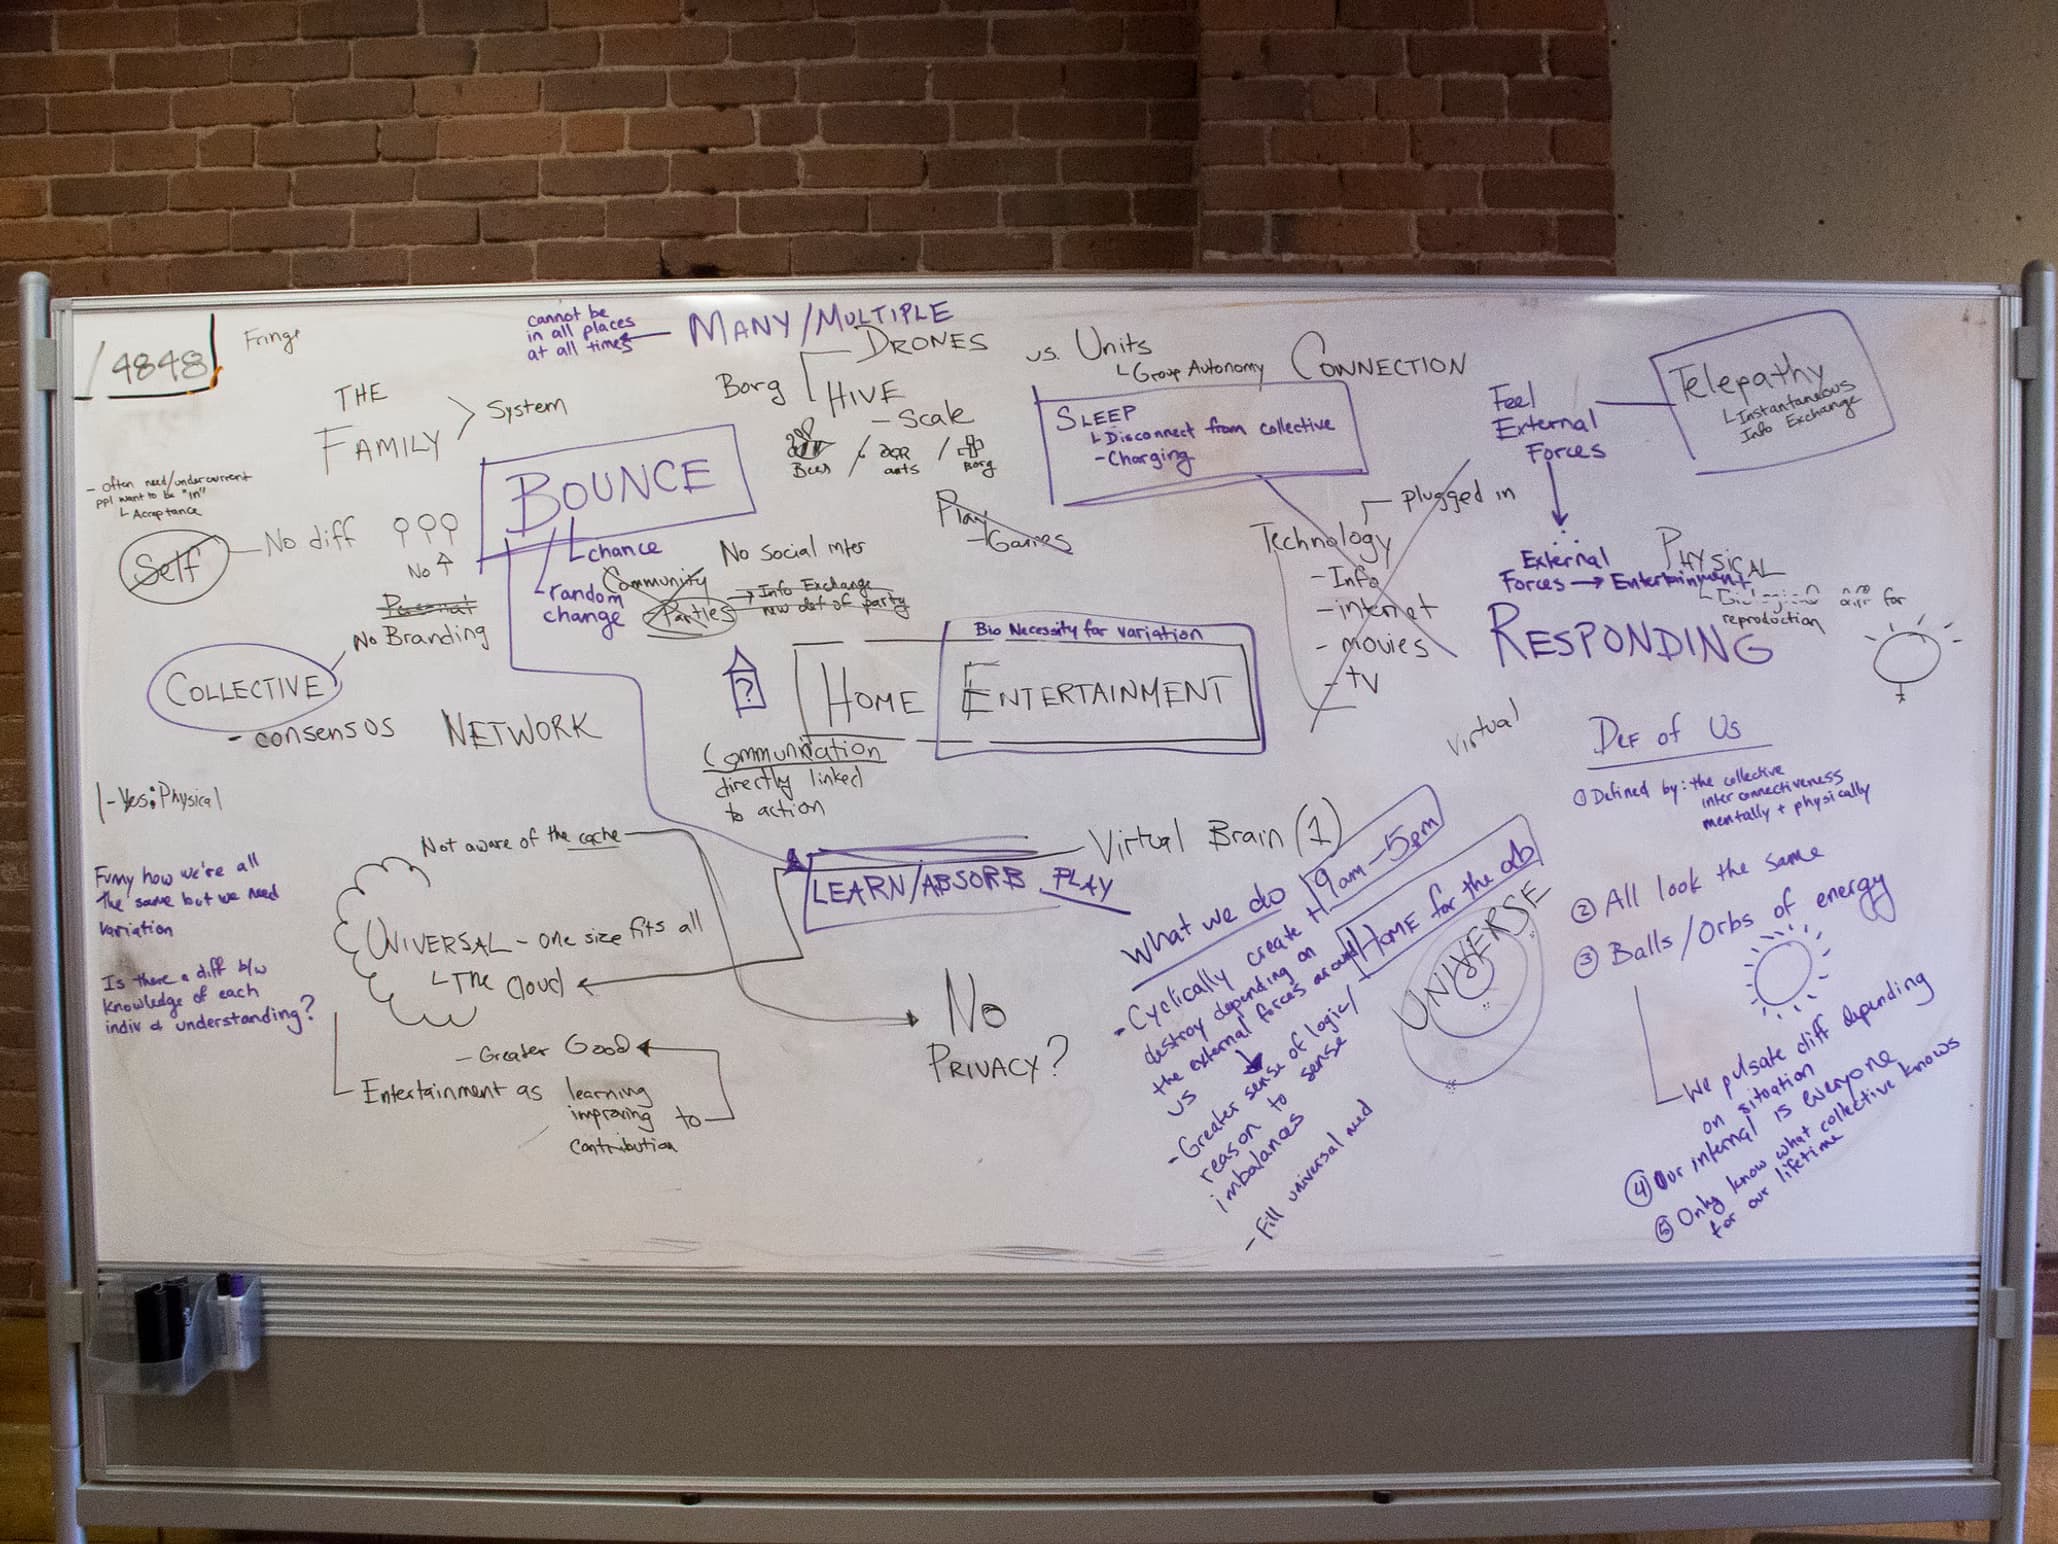 4848
Fringe
cannot be
in all places
at all times
MANY/MULTIPLE
DRONES
vs. Units
Group Autonomy
Borg
HIVE
- Scale
Bees
/
ants
/
Borg
CONNECTION
THE
FAMILY
System
SLEEP
Disconnect from collective
- Charging
Feel
External
Forces
Telepathy
Instantaneous
Info Exchange
- Often need/undercurrent
ppl want to be "in"
Acceptance
BOUNCE
chance
random
change
Self
No diff
No
Personal
No Branding
Play
- Games
No social inter
Community
Parties
Info Exchange
new def of party
plugged in
Technology
- Info
- internet
- movies
- TV
External
Forces → Entertainment
PHYSICAL
diff for
reproduction
RESPONDING
COLLECTIVE
- consensos
NETWORK
?
Bio Necessity for variation
HOME
ENTERTAINMENT
Communication
directly linked
to action
Virtual
DEF of US
① Defined by: the collective
interconnectiveness
mentally + physically
② All look the same
③ Balls/Orbs of energy
We pulsate diff depending
on situation
④ Our internal is everyone
⑤ Only know what collective knows
for our lifetime
- Yes: Physical
Funny how we're all
the same but we need
variation
Is there a diff b/w
knowledge of each
indiv & understanding?
Not aware of the cache
UNIVERSAL - one size fits all
The Cloud
- Greater Good
Entertainment as
learning
improving
contribution
to
LEARN/ABSORB PLAY
Virtual Brain (1)
No
PRIVACY?
What we do
9am-5pm
HOME for the orb
- Cyclically create +
destroy depending on
the external forces around
us
- Greater sense of logic/
sense
reason to
imbalances
- Fill universal need
UNIVERSE